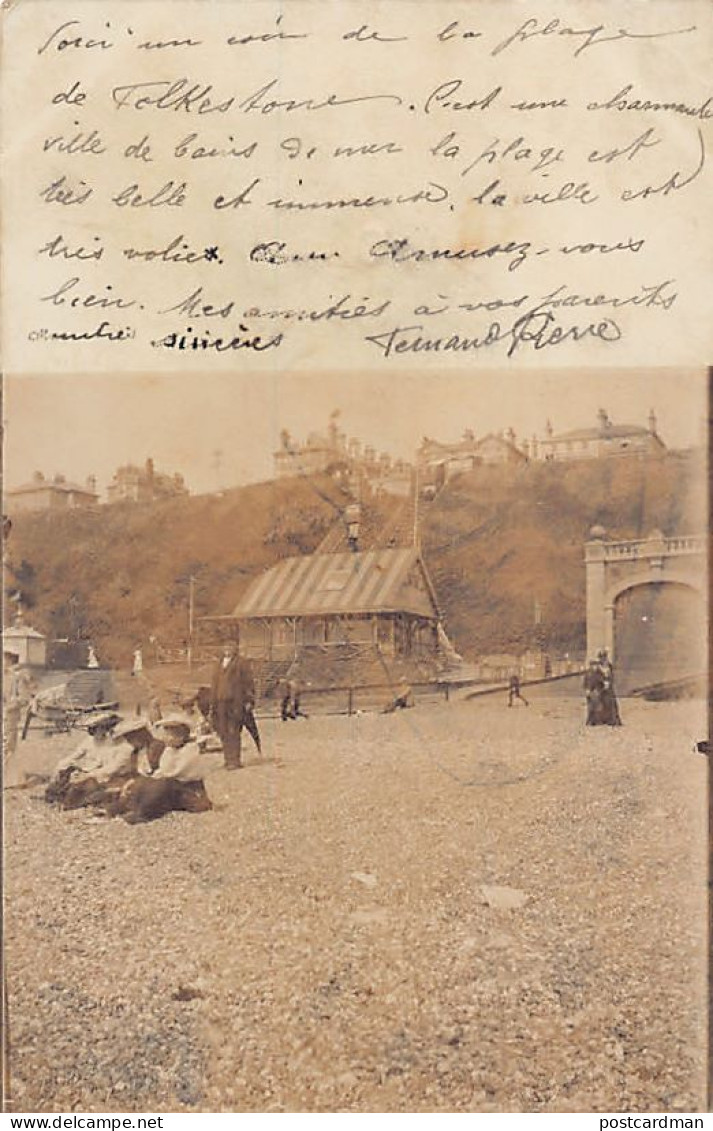 Voici un coin de la plage
de Folkestone. C'est une charmante
ville de bains de mer la plage est
très belle et immense. la ville est
très jolie. Amusez-vous
bien. Mes amitiés à vos parents
sincères Fernand Pierre
postcardman